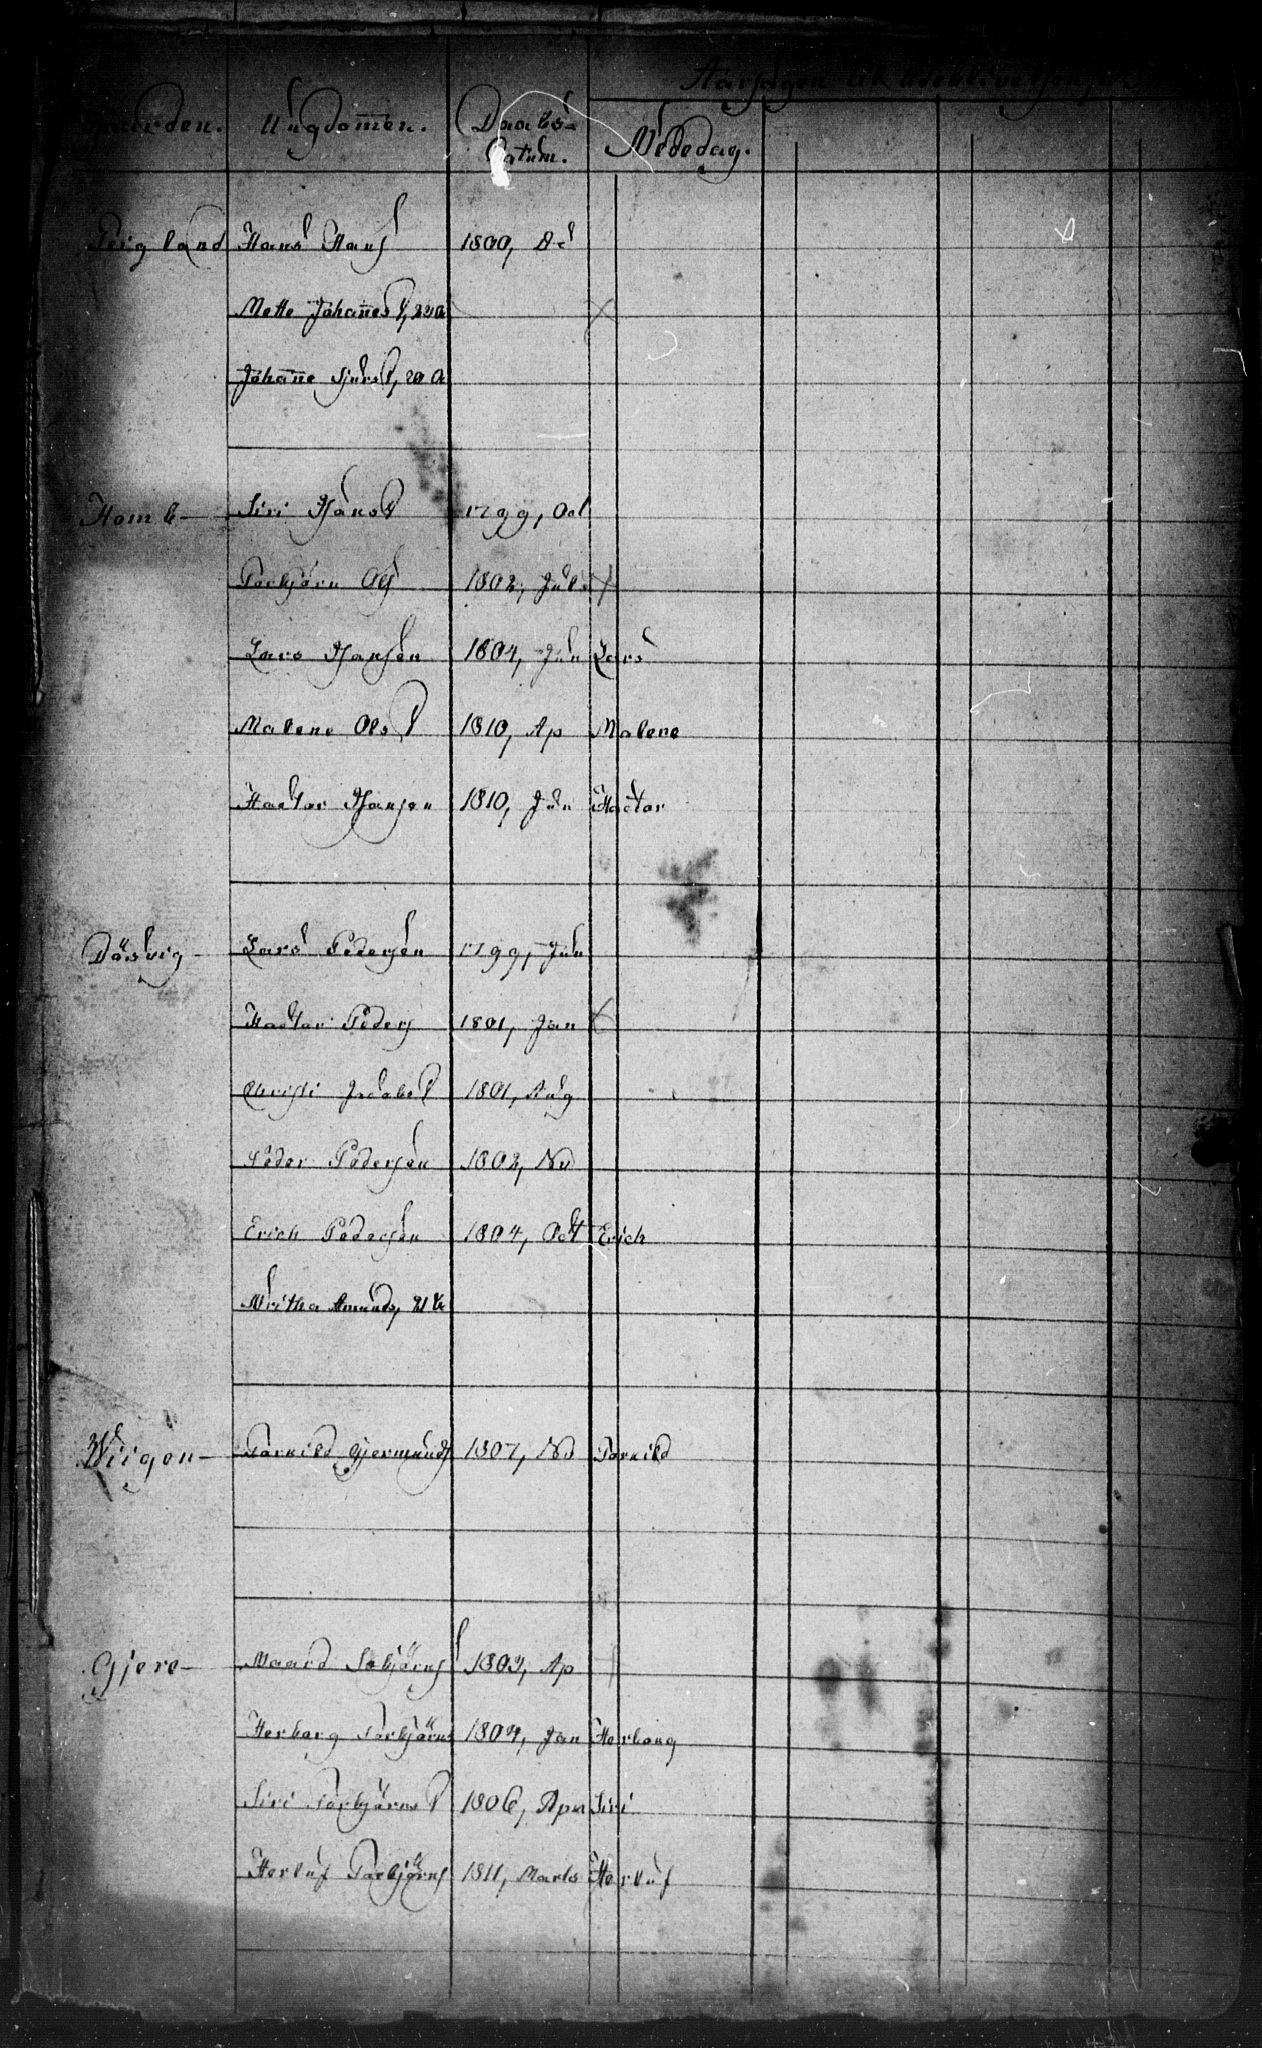 Aarsagen til Udeblivelsen,
Gaarden. Ungdommen. Daabs-
Datum. Mødedag.
Hans Hans 1800,
Mette Johannes, 22 A
Johanne Sjurs, 20 A
Homb- Siri Hans 1799, Oct
Torbjörn Ols 1802, Jul
Lars Hansen 1804, Jun Lars
Malene Ols 1810, Ap Malene
Hactor Hansen 1810, Jun Hactor
Dösvig- Lars Pedersen 1799, Jun
Hactor Peders 1801, Jan
Christi Jacobs 1801, Aug
Peder Pedersen 1802, No
Erich Pedersen 1804, Oct Erich
Amunds, 21 A
Wiigen- Tornild Gjermunds 1807, No Tornild
Gjere- Torbjörns Ap
Herborg Torbjörns 1804, Jan Herborg
Siri Torbjörns 1806, Apr Siri
Herluf Torbjörns 1811, Marts Herluf